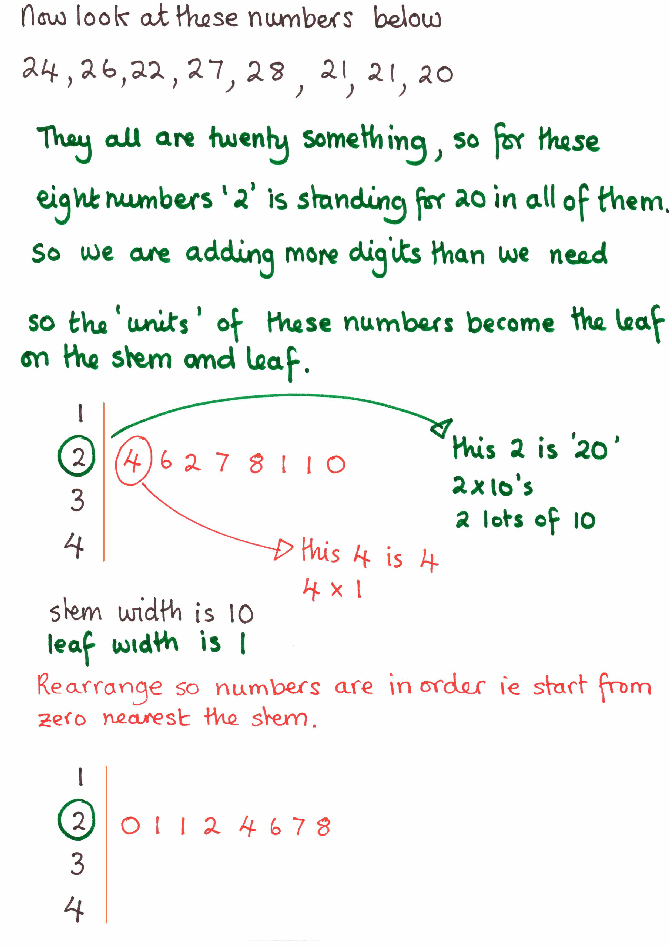 Now look at these numbers below
24, 26, 22, 27, 28, 21, 21, 20
They all are twenty something, so for these
eight numbers '2' is standing for 20 in all of them.
So we are adding more digits than we need
so the 'units' of these numbers become the leaf
on the stem and leaf.
1
2 4 6 2 7 8 1 1 0
3
4
this 2 is '20'
2x10's
2 lots of 10
this 4 is 4
4 x 1
stem width is 10
leaf width is 1
Rearrange so numbers are in order ie start from
zero nearest the stem.
1
2 0 1 1 2 4 6 7 8
3
4